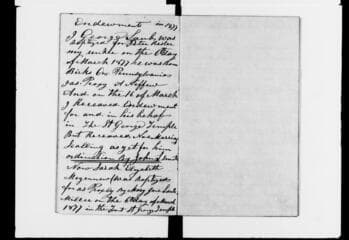 Endowment in 1877
I George Laub was
Baptized for Peter
my unkle on the 6 day
of March 1877 he was born
Birks Co. Pennsylvania
I as Proxy
And on the 16 of March
I Receaved Endowment
for and in his behalf
in The St George Temple
But Receaved No
Sealing as yet for him
ordination By John
Now Sarah Elizabeth
was Baptized
for as Proxy By Mary Jane
Miller on the 6 day of March
1877 in the St George Temple